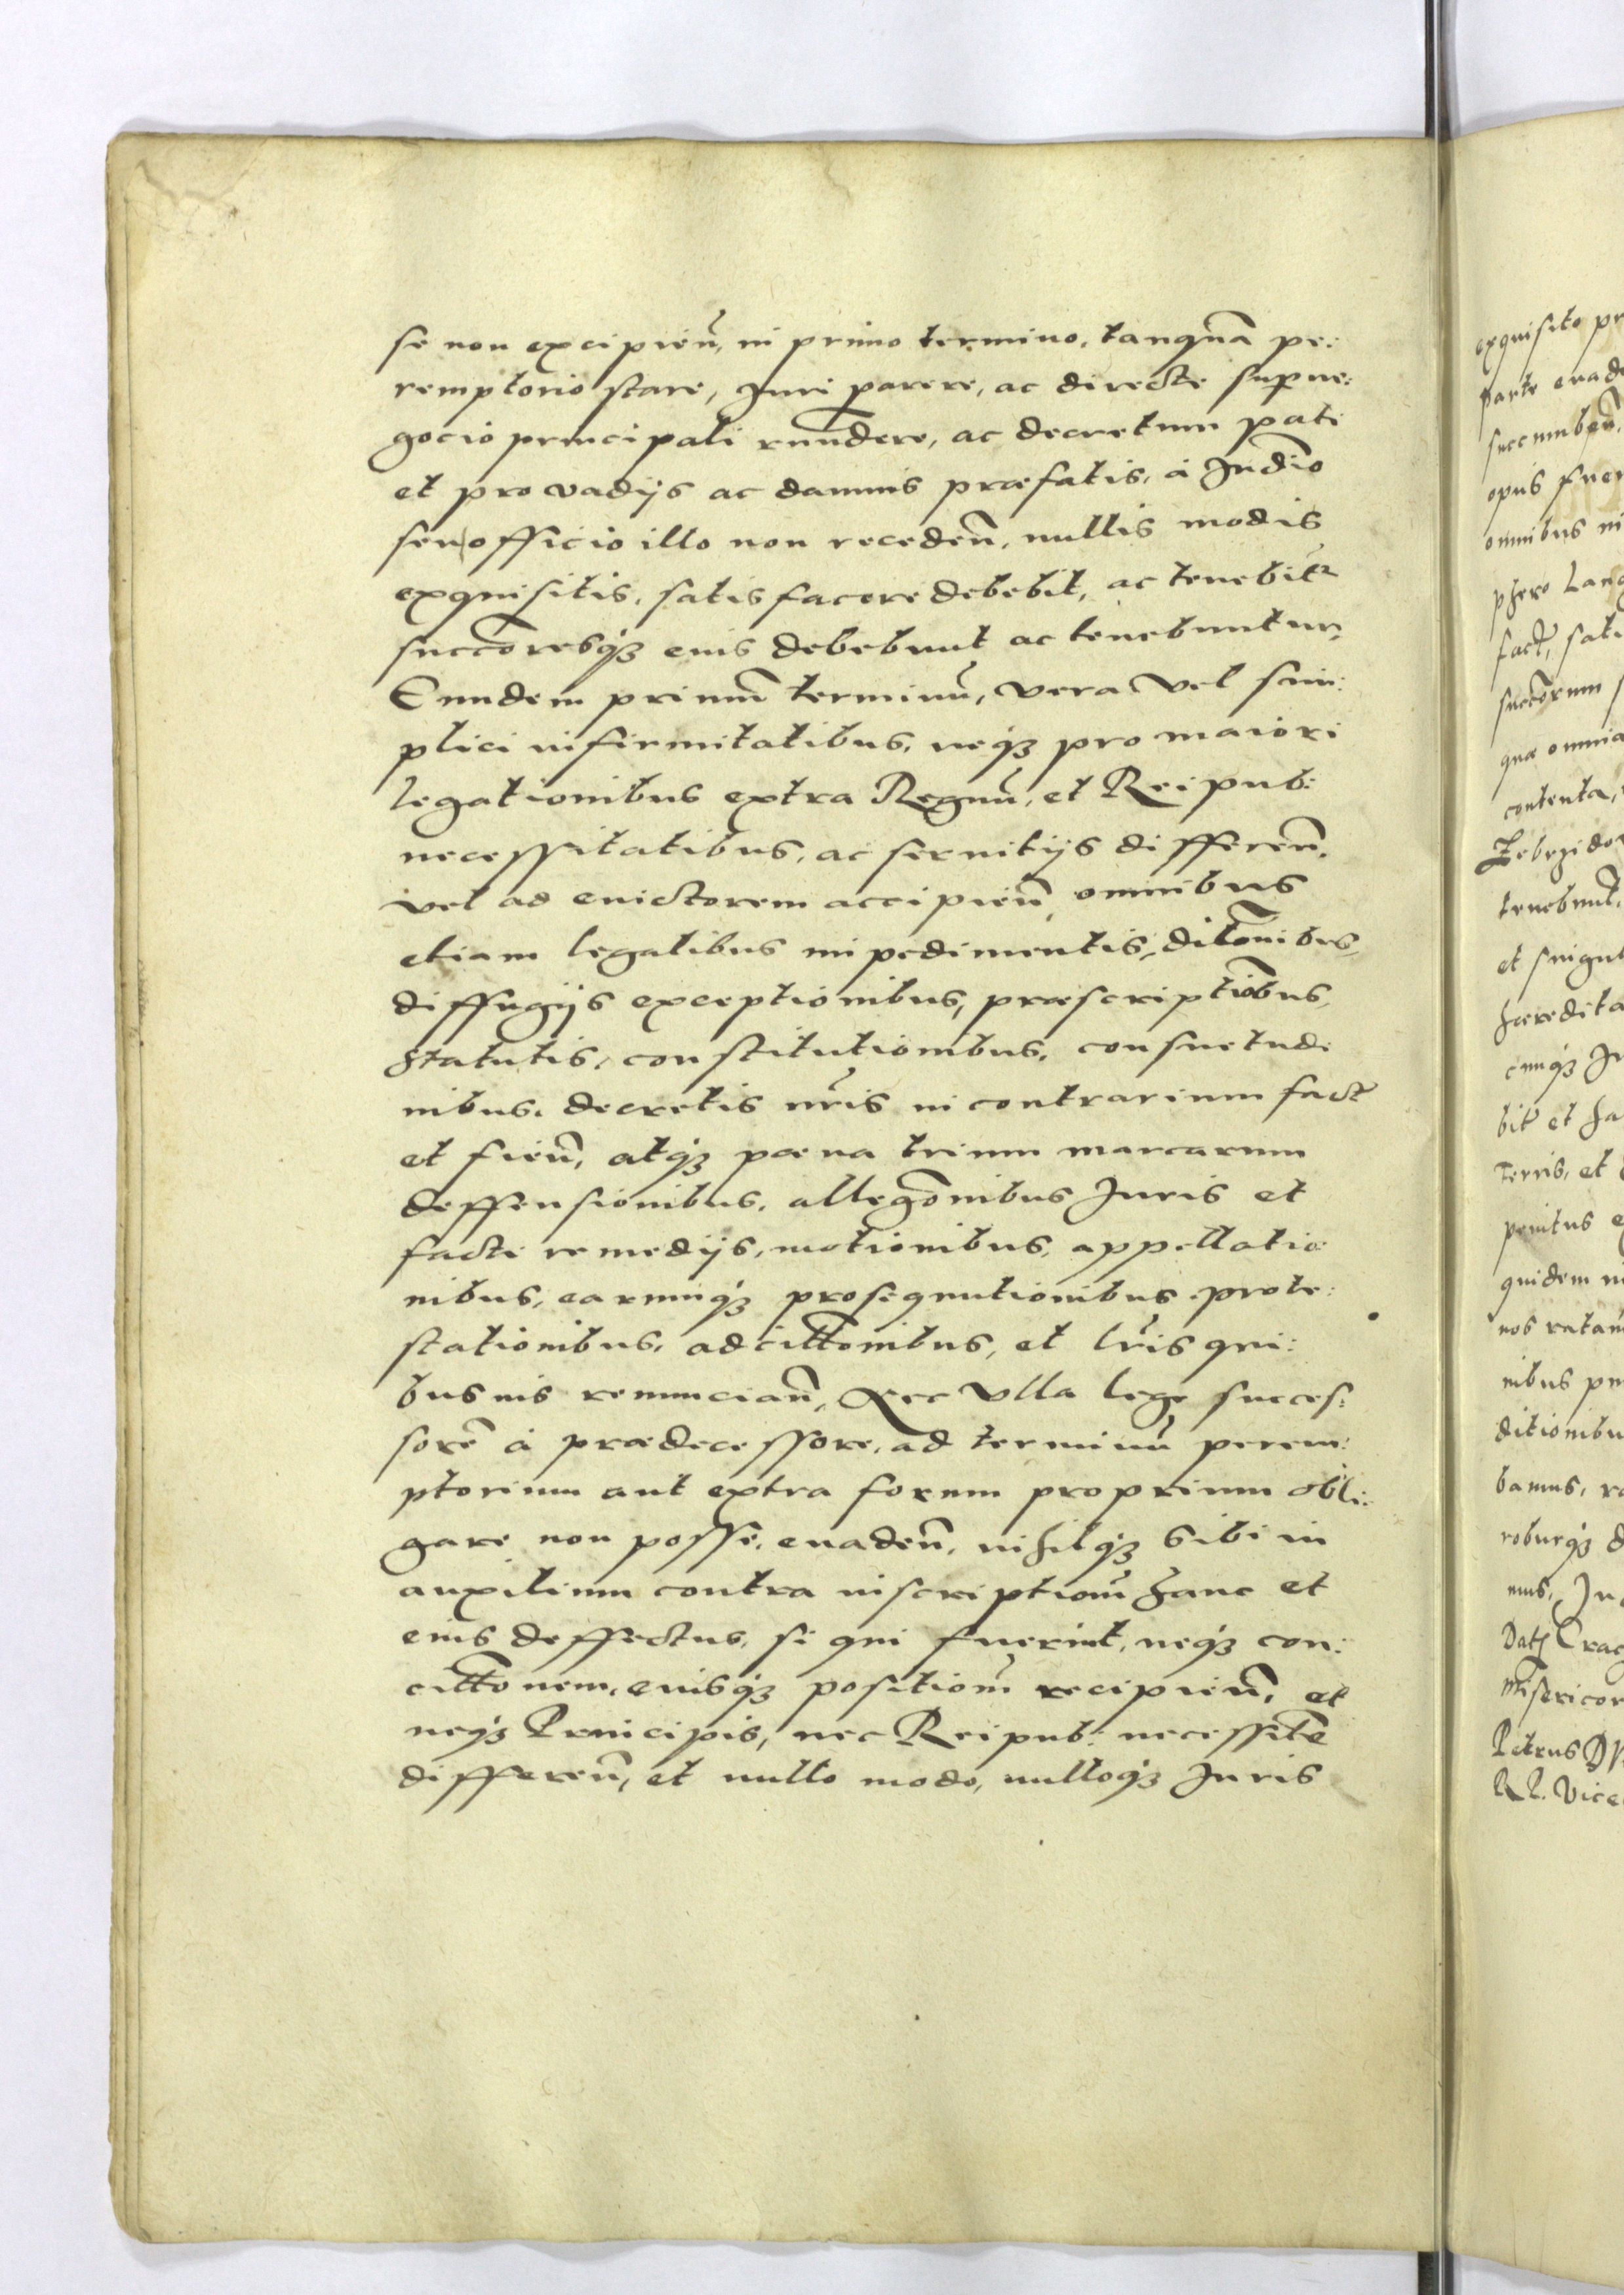 se non excipien̄, in primo termino, tanquā pe:
remptorio stare, Iuri parere, ac directe sup ne:
gocio principali rn̄ndere, ac decretum pati
et pro vadijs ac damnis præfatis, à Iudīo
seu officio illo non receden̄, nullis modis
exquisitis, satisfacere debebit, ac tenebitr
succōresqꝫ eius debebunt ac tenebuntur,
Eundem primū terminū, vera vel sim:
plici infirmitatibus, neqꝫ pro maiori
legationibus extra Regnū, et Reipub:
necessitatibus, ac seruitijs differen̄,
vel ad euictorem accipien̄, omnibus
etiam legalibus impedimentis, dilōnibus,
diffugijs exceptionibus, præscriptiōbus,
statutis, constitutionibus, consuetudi
nibus, decretis nr̄is in contrarium fact
et fien̄, atqꝫ pœna trium marcarum
deffensionibus, allegōnibus Iuris et
facti remedijs, motionibus, appellatio
nibus, earumqꝫ prosequutionibus prote:
stationibus, adcittōnibus, et lr̄is qui:
bus uis renuncian̄, Nec vlla lege succes:
sorē à prædecessore, ad terminū perem:
ptorium aut extra forum proprium obli:
gare non posse, euaden̄, nihilqꝫ sibi in
auxilium contra inscriptionē hanc et
eius deffectus, si qui fuerint, neqꝫ con:
cittōnem, eiusqꝫ positionē recipien̄, et
neqꝫ Principis, nec Reipub: necessitē
differen̄, et nullo modo, nulloqꝫ Iuris

exquisito
parte
opus
omnibus
fact, sati
succōrum
quæ omnia
contenta,
tenebunt,
et singul
hæredita
cuiqꝫ
bit et
terris, et
penitus
quidem
nos ratam
nibus
ditionibu
bamus,
roburqꝫ
mus, In
Dat Crac
Misericor
Petrus
R P. Vice